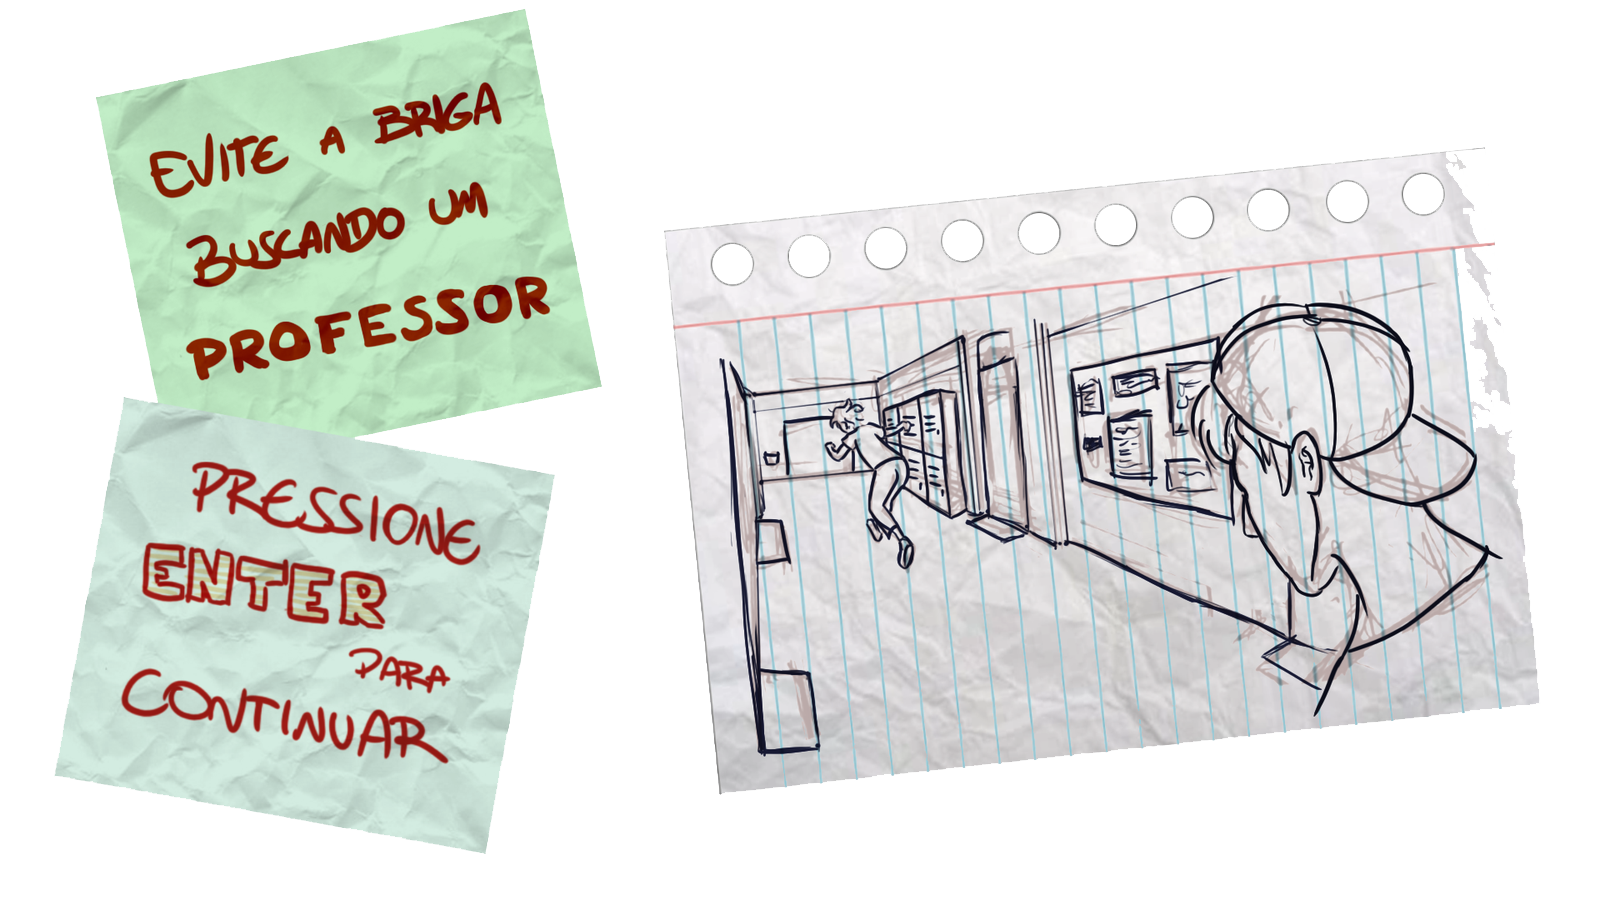 EVITE A BRIGA
BUSCANDO UM
PROFESSOR
PRESSIONE
ENTER
PARA
CONTINUAR